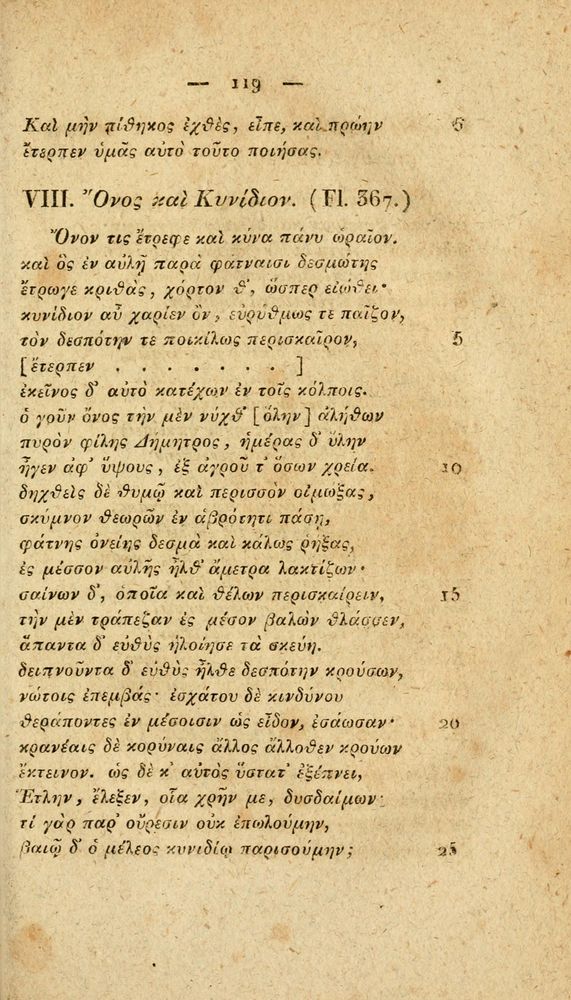 — 119 —
Καὶ μὴν πίθηκος ἐχθὲς, εἶπε, καὶ πρώην 6
ἔτερπεν ὑμᾶς αὐτὸ τοῦτο ποιήσας.
VIII. Ὄνος καὶ Κυνίδιον. (Fl. 367.)
Ὄνον τις ἔτρεφε καὶ κύνα πάνυ ὡραῖον.
καὶ ὃς ἐν αὐλῇ παρὰ φάτναισι δεσμώτης
ἔτρωγε κριθὰς, χόρτον θ', ὥσπερ εἰώθει·
κυνίδιον αὖ χαρίεν ὂν, εὐρύθμως τε παῖζον,
τὸν δεσπότην τε ποικίλως περισκαῖρον, 5
[ἔτερπεν . . . . . . . ]
ἐκεῖνος δ' αὐτὸ κατέχων ἐν τοῖς κόλποις.
ὁ γοῦν ὄνος τὴν μὲν νύχθ' [ὅλην] ἀλήθων
πυρὸν φίλης Δήμητρος, ἡμέρας δ' ὕλην
ἦγεν ἀφ' ὕψους, ἐξ ἀγροῦ τ' ὅσων χρεία. 10
δηχθεὶς δὲ θυμῷ καὶ περισσὸν οἰμώξας,
σκύμνον θεωρῶν ἐν ἁβρότητι πάσῃ,
φάτνης ὀνείης δεσμὰ καὶ κάλως ῥήξας,
ἐς μέσσον αὐλῆς ἦλθ' ἄμετρα λακτίζων·
σαίνων δ', ὁποῖα καὶ θέλων περισκαίρειν, 15
τὴν μὲν τράπεζαν ἐς μέσον βαλὼν θλάσσεν,
ἅπαντα δ' εὐθὺς ἠλοίησε τὰ σκεύη.
δειπνοῦντα δ' εὐθὺς ἦλθε δεσπότην κρούσων,
νώτοις ἐπεμβάς· ἐσχάτου δὲ κινδύνου
θεράποντες ἐν μέσοισιν ὡς εἶδον, ἐσάωσαν· 20
κρανέαις δὲ κορύναις ἄλλος ἄλλοθεν κρούων
ἔκτεινον. ὡς δὲ κ' αὐτὸς ὕστατ' ἐξέπνει,
Ἔτλην, ἔλεξεν, οἷα χρῆν με, δυσδαίμων·
τί γὰρ παρ' οὔρεσιν οὐκ ἐπωλούμην,
βαιῷ δ' ὁ μέλεος κυνιδίῳ παρισούμην; 25